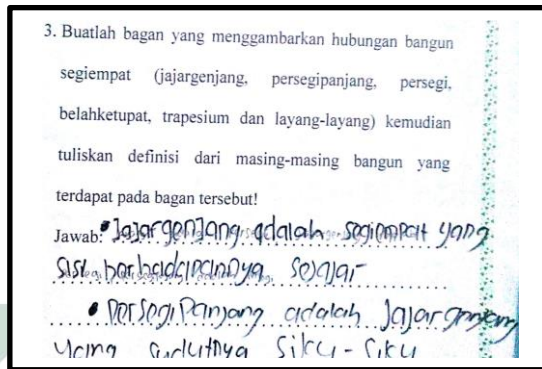 3. Buatlah bagan yang menggambarkan hubungan bangun
segiempat (jajargenjang, persegipanjang, persegi,
belahketupat, trapesium dan layang-layang) kemudian
tuliskan definisi dari masing-masing bangun yang
terdapat pada bagan tersebut!
Jawab: • Jajargenjang adalah segiempat yang
sisi berhadapannya sejajar
• persegipanjang adalah Jajargenjang
yang sudutnya siku-siku